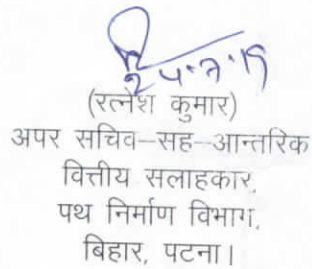 24.7.19
(रत्नेश कुमार)
अपर सचिव–सह–आन्तरिक
वित्तीय सलाहकार,
पथ निर्माण विभाग,
बिहार, पटना।